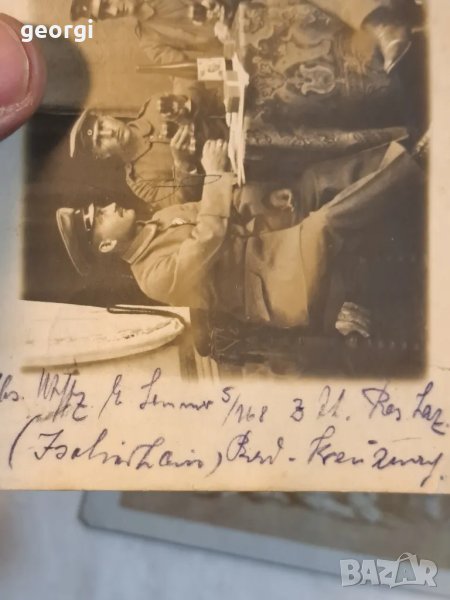 georgi
Abs. Uffz. K. Lemmer 5/168 z. Zt. Res Laz.
(Isolierhaus), Bad-Kreuznach.
BAZAR